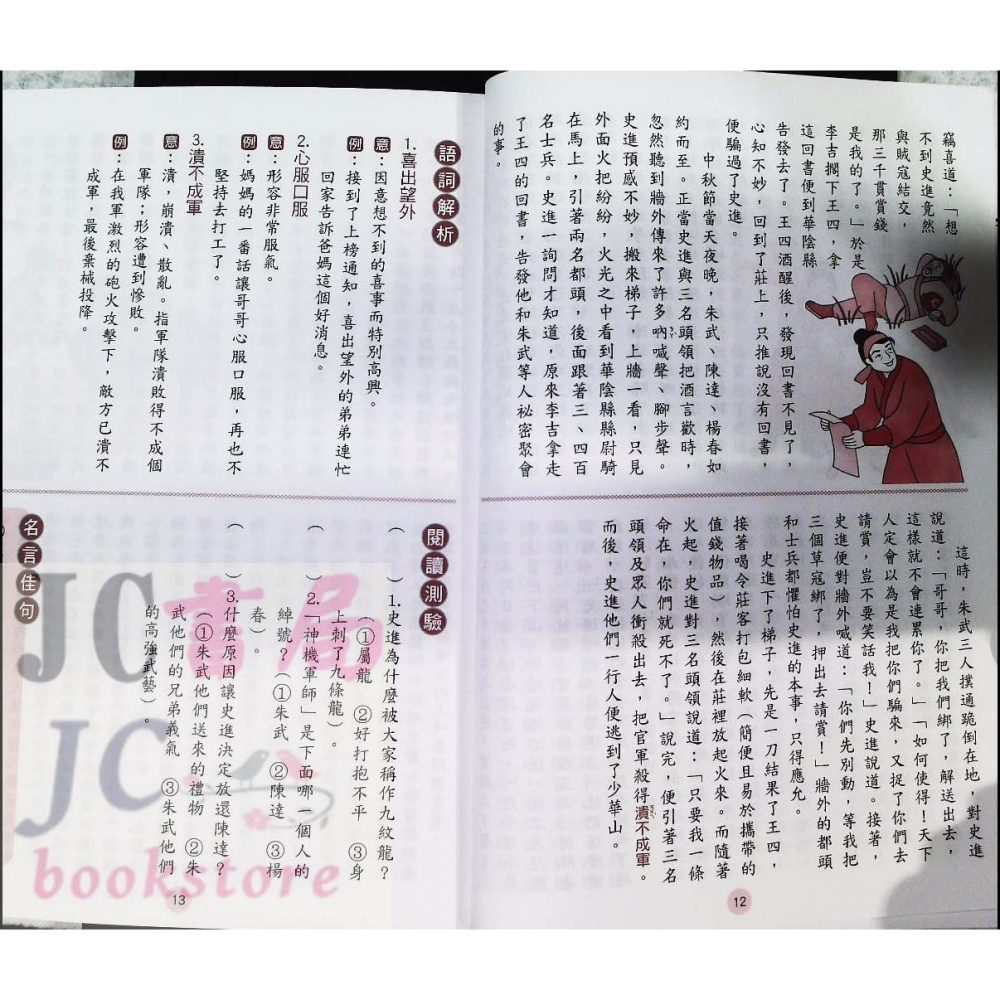 竊喜道：「想
不到史進竟然
與賊寇結交，
那三千貫賞錢
是我的了。」於是
李吉擱下王四，拿
這回書便到華陰縣
告發去了。王四酒醒後，發現回書不見了，
心知不妙，回到了莊上，只推說沒有回書，
便騙過了史進。
中秋節當天夜晚，朱武、陳達、楊春如
約而至。正當史進與三名頭領把酒言歡時，
忽然聽到牆外傳來了許多吶喊聲、腳步聲。
史進預感不妙，搬來梯子，上牆一看，只見
外面火把紛紛，火光之中看到華陰縣縣尉騎
在馬上，引著兩名都頭，後面跟著三、四百
名士兵。史進一詢問才知道，原來李吉拿走
了王四的回書，告發他和朱武等人祕密聚會
的事。
這時，朱武三人撲通跪倒在地，對史進
說道：「哥哥，你把我們綁了，解送出去，
這樣就不會連累你了。」「如何使得！天下
人定會以為是我把你們騙來，又捉了你們去
請賞，豈不要笑話我！」史進說道。接著，
史進便對牆外喊道：「你們先別動，等我把
三個草寇綁了，押出去請賞！」牆外的都頭
和士兵都懼怕史進的本事，只得應允。
史進下了梯子，先是一刀結果了王四，
接著喝令莊客打包細軟（簡便且易於攜帶的
值錢物品），然後在莊裡放起火來。而隨著
火起，史進對三名頭領說道：「只要我一條
命在，你們就死不了。」說完，便引著三名
頭領及眾人衝殺出去，把官軍殺得潰不成軍。
而後，史進他們一行人便逃到了少華山。
12
語詞解析
1.喜出望外
意：因意想不到的喜事而特別高興。
例：接到了上榜通知，喜出望外的弟弟連忙
回家告訴爸媽這個好消息。
2.心服口服
意：形容非常服氣。
例：媽媽的一番話讓哥哥心服口服，再也不
堅持去打工了。
3.潰不成軍
意：潰，崩潰、散亂。指軍隊潰敗得不成個
軍隊；形容遭到慘敗。
例：在我軍激烈的砲火攻擊下，敵方已潰不
成軍，最後棄械投降。
閱讀測驗
（　）1.史進為什麼被大家稱作九紋龍？
（①屬龍　②好打抱不平　③身
上刺了九條龍）。
（　）2.「神機軍師」是下面哪一個人的
綽號？（①朱武　②陳達　③楊
春）。
（　）3.什麼原因讓史進決定放還陳達？
（①朱武他們送來的禮物　②朱
武他們的兄弟義氣　③朱武他們
的高強武藝）。
名言佳句
13
JC書局
JC
bookstore